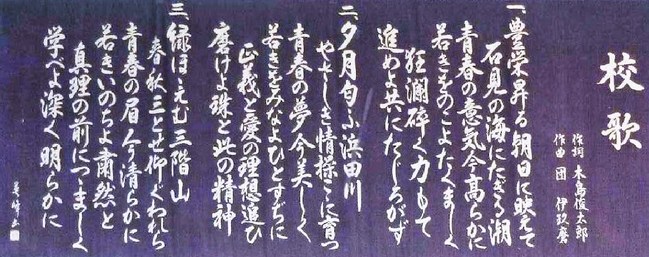 校歌
作詞 木島俊太郎
作曲 団 伊玖磨
一、豊栄昇る朝日に映えて
石見の海にたぎる潮
青春の意気今高らかに
若きをのこよたくましく
狂瀾砕く力もて
進めよ共にたじろがず
二、夕月匂ふ浜田川
やさしき情操こゝに育つ
青春の夢今美しく
若きをみなよひとすぢに
正義と愛の理想追ひ
磨けよ珠と此の精神
三、緑ほゝえむ三階山
春秋三とせ仰ぐわれら
青春の眉今清らかに
若きいのちよ粛然と
真理の前につゝましく
学べよ深く明らかに